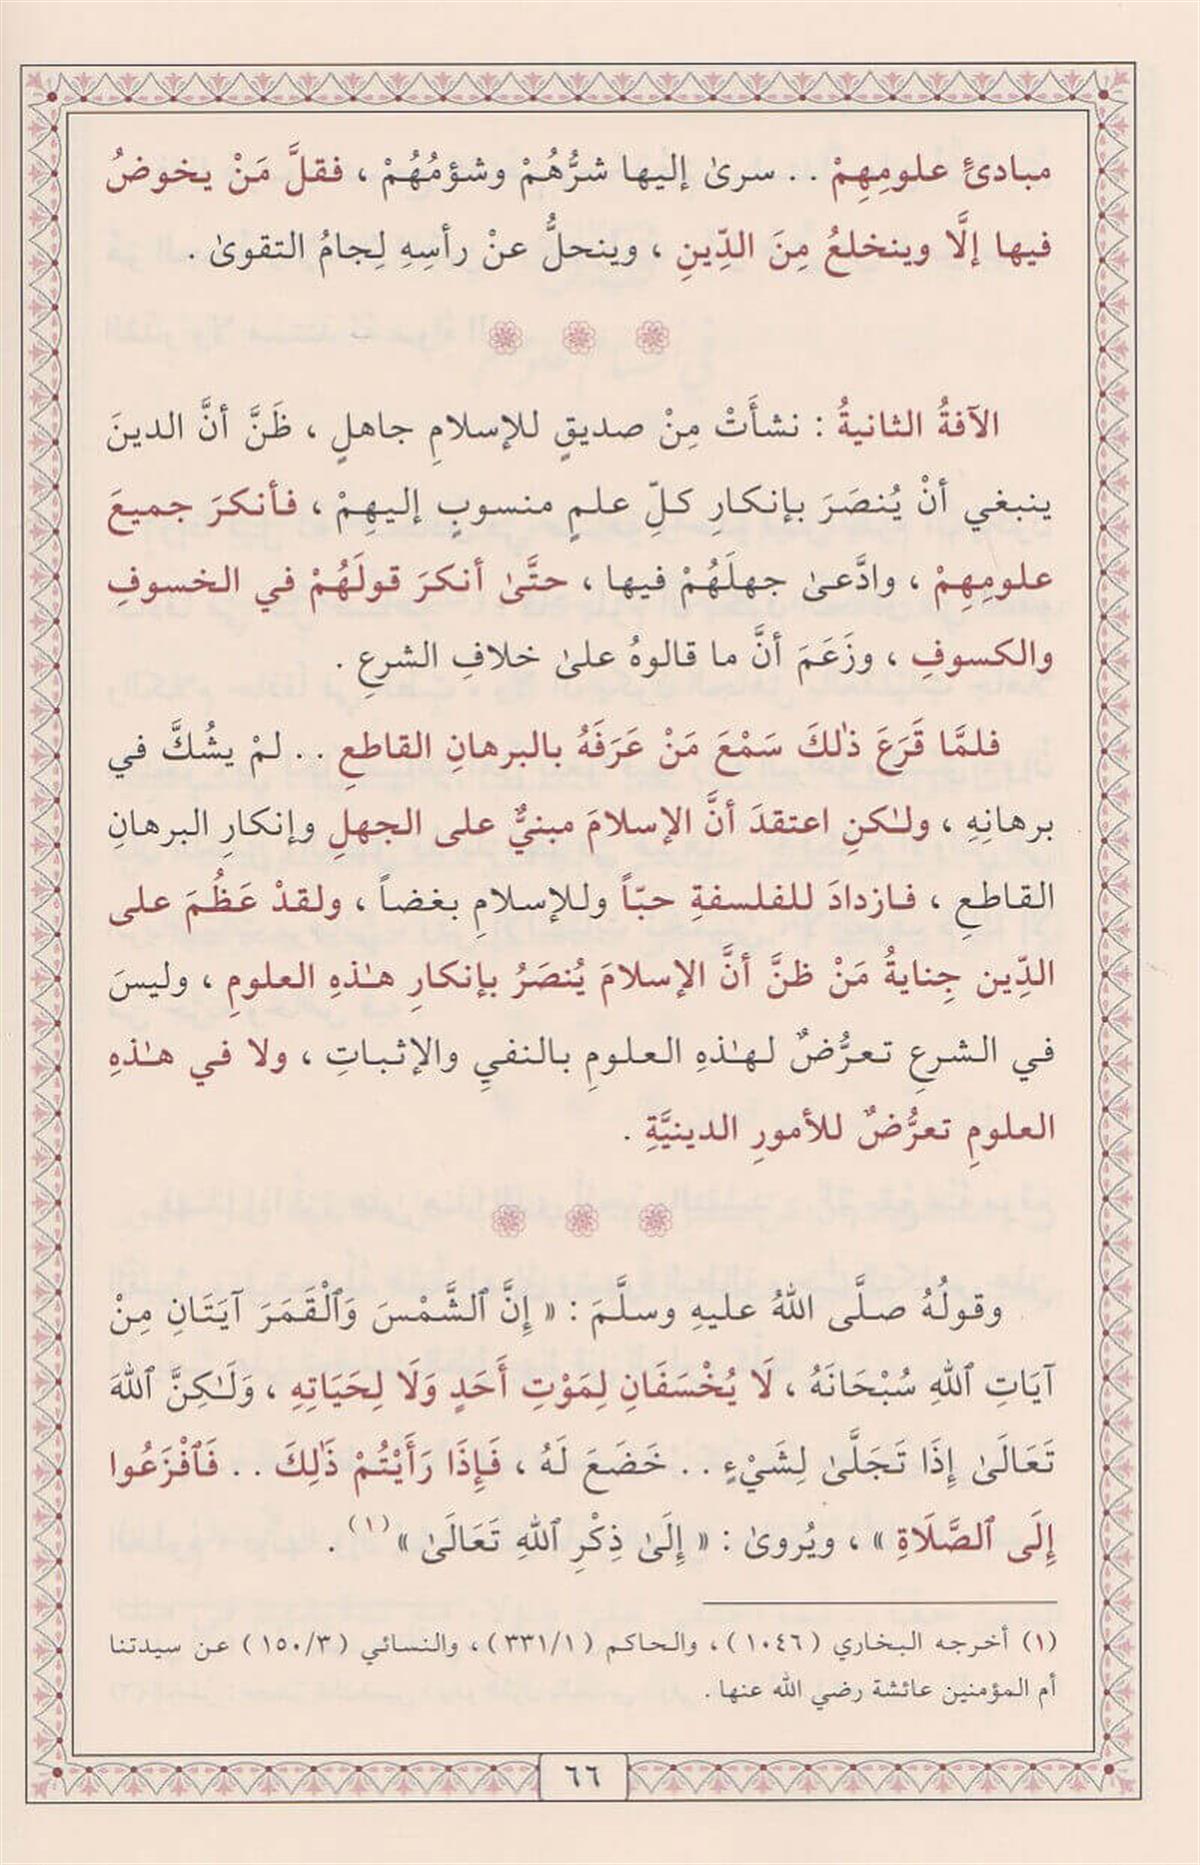 مبادئِ علومِهِمْ . . سرىٰ إليها شرُّهُمْ وشؤمُهُمْ ، فقلَّ مَنْ يخوضُ
فيها إلَّا وينخلعُ مِنَ الدِّينِ ، وينحلُّ عنْ رأسِهِ لِجامُ التقوىٰ .
الآفةُ الثانيةُ : نشأَتْ مِنْ صديقٍ للإسلامِ جاهلٍ ، ظَنَّ أنَّ الدينَ
ينبغي أنْ يُنصَرَ بإنكارِ كلِّ علمٍ منسوبٍ إليهِمْ ، فأنكرَ جميعَ
علومِهِمْ ، وادَّعىٰ جهلَهُمْ فيها ، حتَّىٰ أنكرَ قولَهُمْ في الخسوفِ
والكسوفِ ، وزَعَمَ أنَّ ما قالوهُ علىٰ خلافِ الشرعِ .
فلمَّا قَرَعَ ذٰلكَ سَمْعَ مَنْ عَرَفَهُ بالبرهانِ القاطعِ . . لمْ يشُكَّ في
برهانِهِ ، ولـٰكنِ اعتقدَ أنَّ الإسلامَ مبنيٌّ على الجهلِ وإنكارِ البرهانِ
القاطعِ ، فـازدادَ للفلسفةِ حبّاً وللإسلامِ بغضاً ، ولقدْ عَظُمَ على
الدِّين جِنايةُ مَنْ ظنَّ أنَّ الإسلامَ يُنصَرُ بإنكارِ هـٰذهِ العلومِ ، وليسَ
في الشرعِ تعرُّضٌ لهـٰذهِ العلومِ بالنفيِ والإثباتِ ، ولا في هـٰذهِ
العلومِ تعرُّضٌ للأمورِ الدينيَّةِ .
وقولُهُ صلَّى اللهُ عليهِ وسلَّمَ : « إِنَّ ٱلشَّمْسَ وَٱلْقَمَرَ آيَتَانِ مِنْ
آيَاتِ ٱللهِ سُبْحَانَهُ ، لَا يُخْسَفَانِ لِمَوْتِ أَحَدٍ وَلَا لِحَيَاتِهِ ، وَلَـٰكِنَّ ٱللهَ
تَعَالَىٰ إِذَا تَجَلَّىٰ لِشَيْءٍ . . خَضَعَ لَهُ ، فَإِذَا رَأَيْتُمْ ذَٰلِكَ . . فَٱفْزَعُوا
إِلَى ٱلصَّلَاةِ » ، ويُروىٰ : « إِلَىٰ ذِكْرِ ٱللهِ تَعَالَىٰ »(١) .
(١) أخرجه البخاري (١٠٤٦)، والحاكم (٣٣١/١)، والنسائي (١٥٠/٣) عن سيدتنا
أم المؤمنين عائشة رضي الله عنها.
٦٦